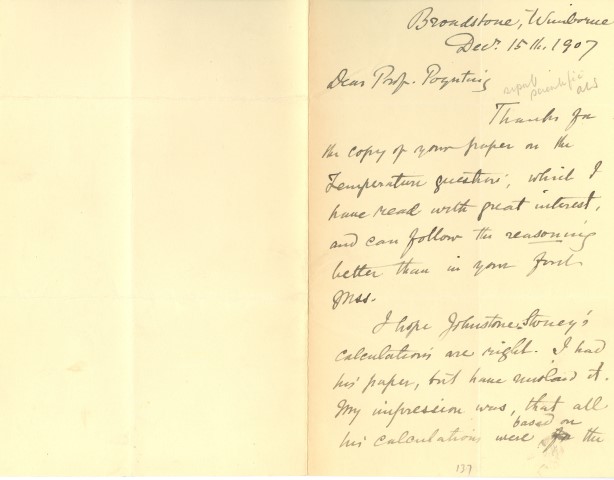 Broadstone, Wimborne
Decr. 15th. 1907
Dear Prof. Poynting
Thanks for
the copy of your paper on the
Temperature question, which I
have read with great interest,
and can follow the reasoning
better than in your first
Mss.
I hope Johnstone Stoney's
calculations are right. I had
his paper, but have mislaid it.
My impression was, that all
based on
his calculations were the
137